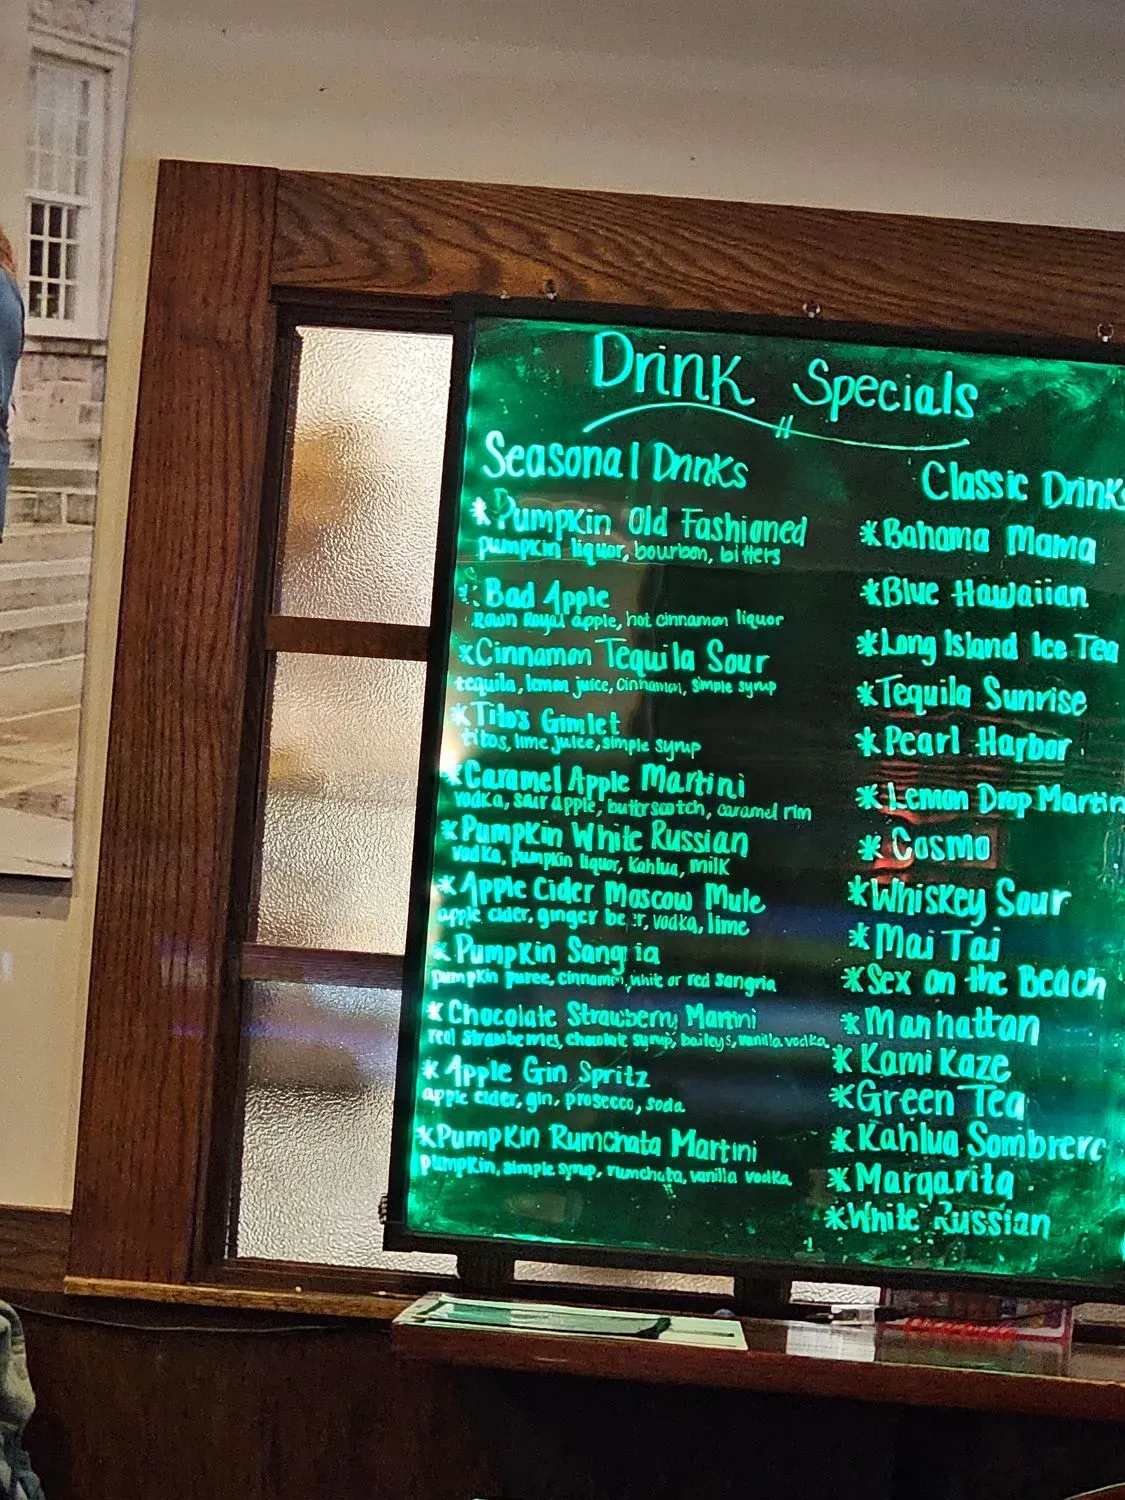 Drink Specials
Seasonal Drinks
* Pumpkin Old Fashioned
pumpkin liquor, bourbon, bitters
* Bad Apple
Rown Royal apple, hot cinnamon liquor
* Cinnamon Tequila Sour
tequila, lemon juice, cinnamon, simple syrup
* Tito's Gimlet
titos, lime juice, simple syrup
* Caramel Apple Martini
vodka, sour apple, butterscotch, caramel rim
* Pumpkin White Russian
vodka, pumpkin liquor, Kahlua, milk
* Apple Cider Moscow Mule
apple cider, ginger beer, vodka, lime
* Pumpkin Sangria
pumpkin puree, cinnamon, white or red sangria
* Chocolate Strawberry Martini
red strawberries, chocolate syrup, baileys, vanilla vodka
* Apple Gin Spritz
apple cider, gin, prosecco, soda
* Pumpkin Rumchata Martini
pumpkin, simple syrup, rumchata, vanilla vodka
Classic Drink
* Bahama Mama
* Blue Hawaiian
* Long Island Ice Tea
* Tequila Sunrise
* Pearl Harbor
* Lemon Drop Martin
* Cosmo
* Whiskey Sour
* Mai Tai
* Sex on the Beach
* Manhattan
* Kami Kaze
* Green Tea
* Kahlua Sombrero
* Margarita
* White Russian